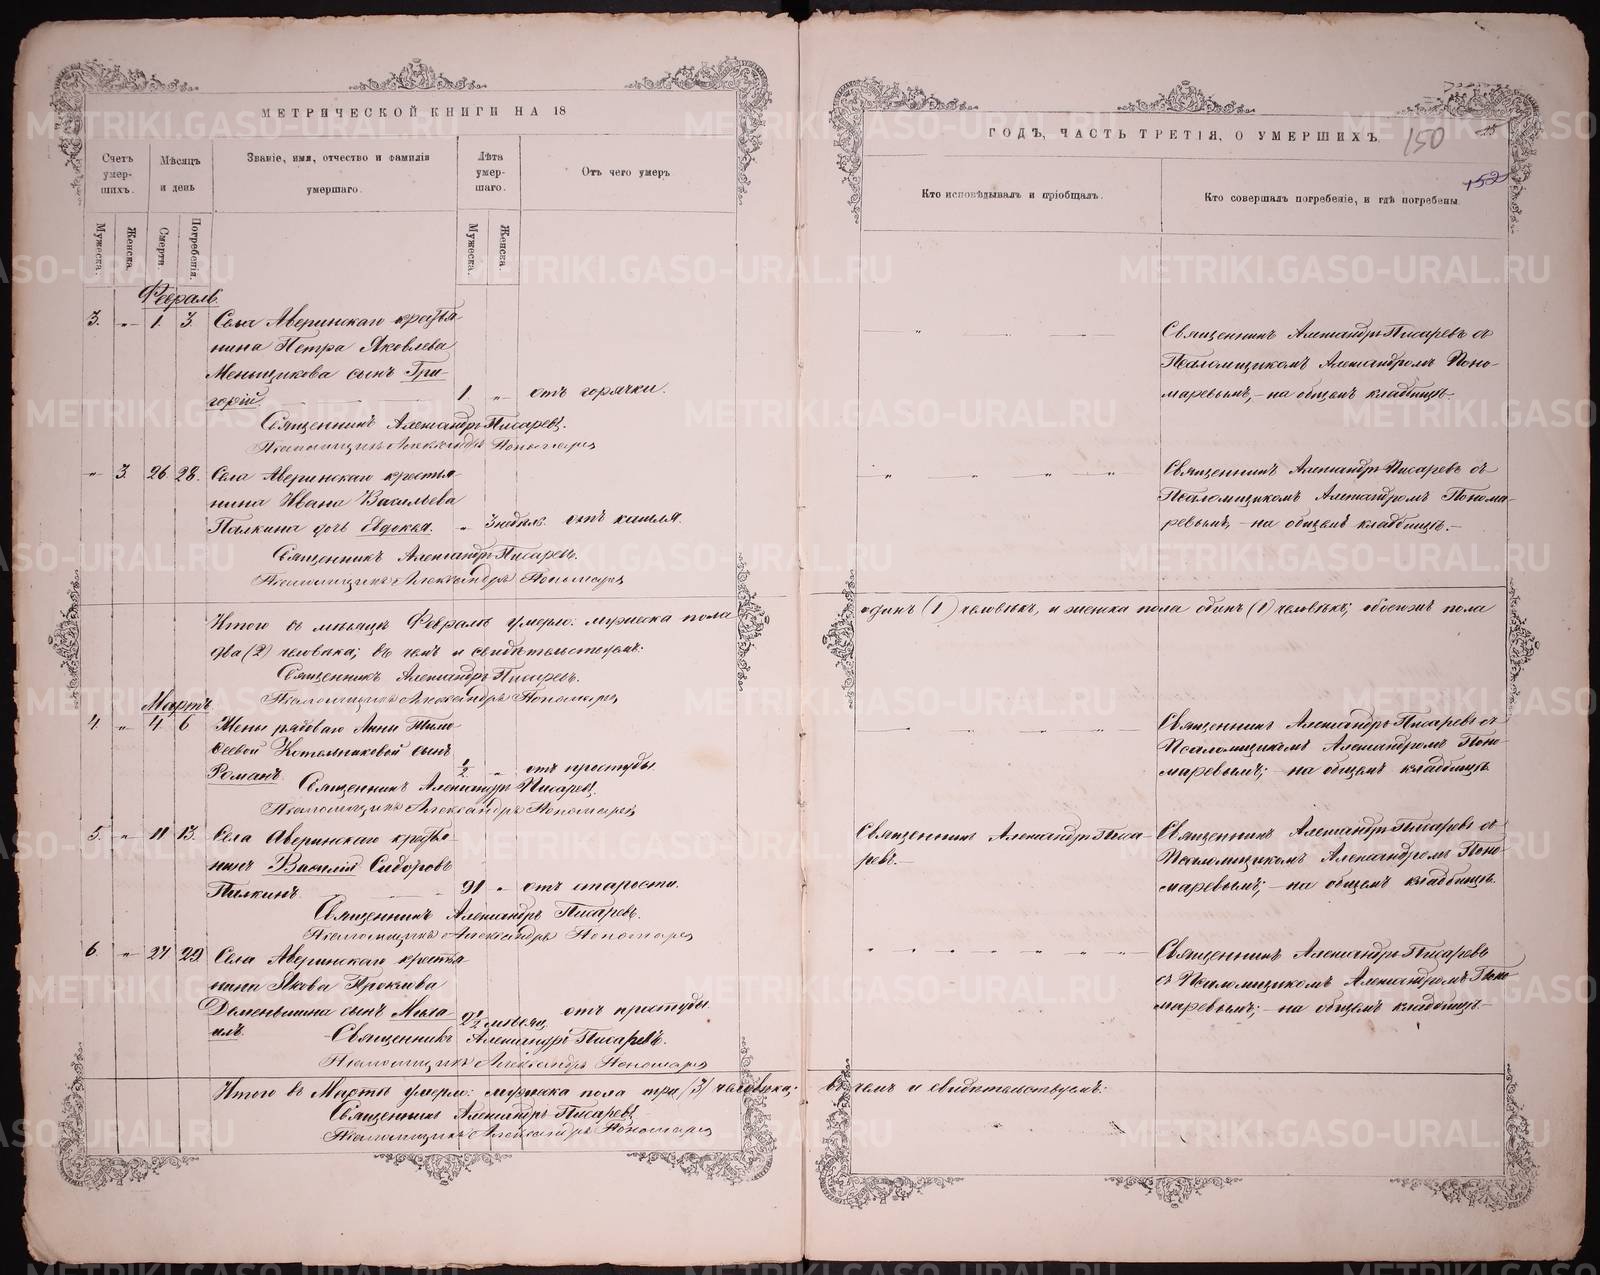 МЕТРИЧЕСКОЙ КНИГИ НА 18
Счетъ умер-шихъ.
Мѣсяцъ и день
Званіе, имя, отчество и фамилія умершаго.
Лѣта умер-шаго.
Отъ чего умеръ
Мужеска.
Женска.
Смерти.
Погребенія.
Мужеска.
Женска.
Февраль.
3. „ 1. 3. Села Аверинскаго крестья-
нина Петра Яковлева
Меньщикова сынъ Гри-
горій 1 „ отъ горячки.
Священникъ Александръ Писаревъ.
Псаломщикъ Александръ Пономарев
„ 3. 26. 28. Села Аверинскаго крестья-
нина Ивана Васильева
Палкина дочь Евдокія. „ 3 недѣль. отъ кашля.
Священникъ Александръ Писаревъ.
Псаломщикъ Александръ Пономарев
Итого въ мѣсяцѣ Февралѣ умерло: мужеска пола
два (2) человѣка; въ чемъ и свидѣтельствуемъ:
Священникъ Александръ Писаревъ.
Псаломщикъ Александръ Пономарев
Мартъ
4 „ 4 6 Жены рядоваго Анны Тимо-
ѳеевой Котельниковой сынъ
Романъ 1/2 „ отъ простуды
Священникъ Александръ Писаревъ.
Псаломщикъ Александръ Пономарев
5. „ 11 13. Села Аверинскаго крестья-
нинъ Василій Сидоровъ
Палкинъ 91 „ отъ старости.
Священникъ Александръ Писаревъ.
Псаломщикъ Александръ Пономарев
6. „ 27 29. Села Аверинскаго крестья-
нина Якова
сынъ Миха-
илъ. 2 1/2 мѣсяц. отъ простуды
Священникъ Александръ Писаревъ.
Псаломщикъ Александръ Пономарев
Итого въ Мартѣ умерло: мужеска пола три (3) человѣка;
Священникъ Александръ Писаревъ
Псаломщикъ Александръ Пономарев
ГОДЪ, ЧАСТЬ ТРЕТІЯ, О УМЕРШИХЪ.
150
Кто исповѣдывалъ и пріобщалъ.
Кто совершалъ погребеніе, и гдѣ погребены.
Священникъ Александръ Писаревъ съ
Псаломщикомъ Александромъ Поно-
маревымъ, – на общемъ кладбищѣ.
Священникъ Александръ Писаревъ съ
Псаломщикомъ Александромъ Понома-
ревымъ, – на общемъ кладбищѣ. –
одинъ (1) человѣкъ, и женска пола одинъ (1) человѣкъ; обоего пола
Священникъ Александръ Писаревъ съ
Псаломщикомъ Александромъ Поно-
маревымъ; – на общемъ кладбищѣ
Священникъ Александръ Писа-
ревъ. –
Священникъ Александръ Писаревъ съ
Псаломщикомъ Александромъ Поно-
маревымъ; – на общемъ кладбищѣ.
Священникъ Александръ Писаревъ
съ Псаломщикомъ Александромъ Поно-
маревымъ; – на общемъ кладбищѣ. –
въ чемъ и свидѣтельствуемъ:
METRIKI.GASO-URAL.RU